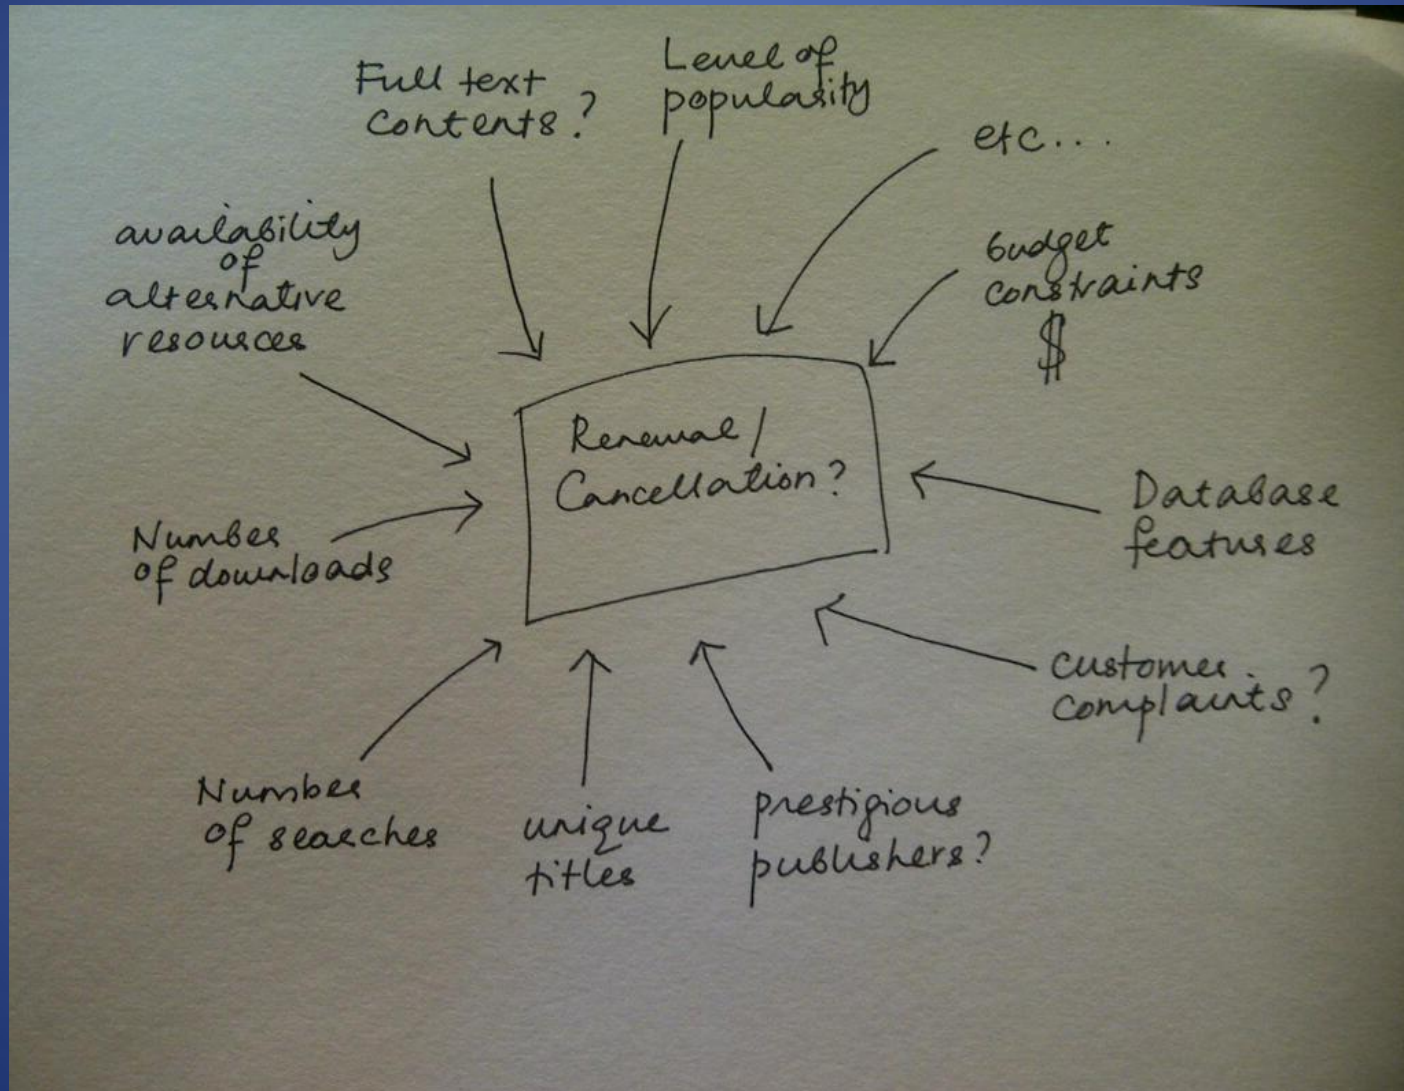 Full text
contents?
Level of
popularity
etc...
budget
constraints
$
availability
of
alternative
resources
Renewal/
Cancellation?
Database
features
Number
of downloads
customer
complaints?
Number
of searches
unique
titles
prestigious
publishers?